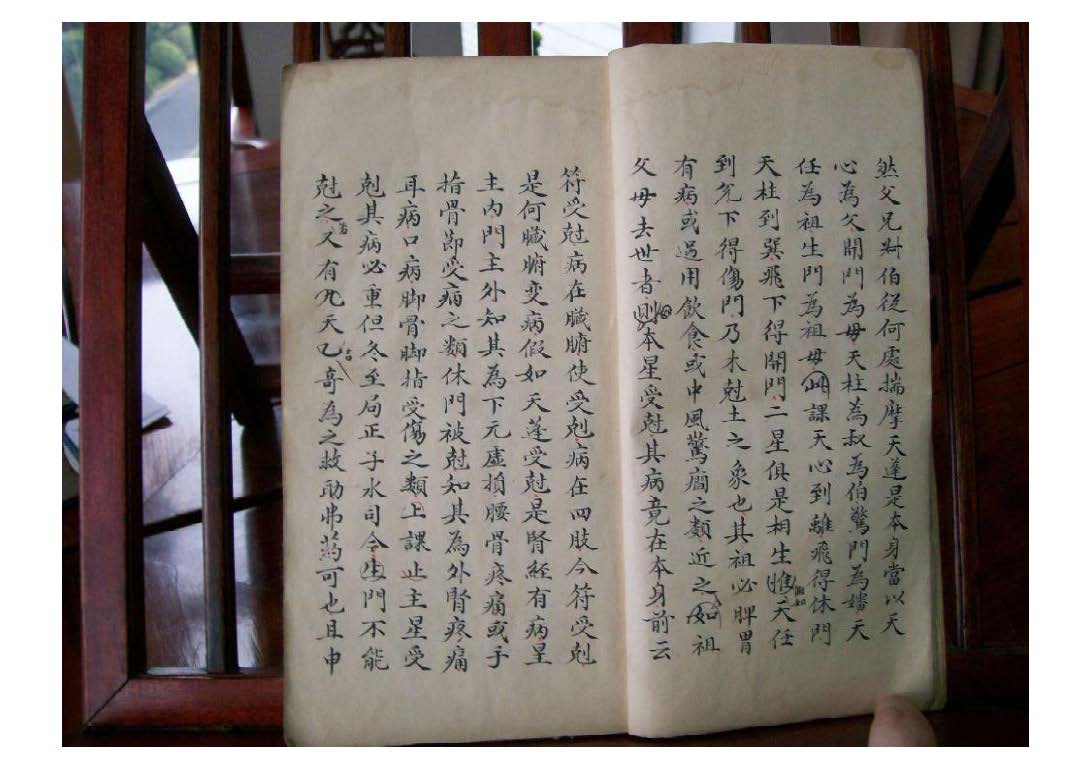 然父兄叔伯從何處揣摩天蓬是本身當以天
心為父開門為母天柱為叔為伯驚門為嬸天
任為祖生門為祖母此課天心到離飛得休門
天柱到巽飛下得開門二星俱是相生惟天任
到兌下得傷門乃木尅土之象也其祖必脾胃
有病或過用飲食或中風驚癎之類近之如祖
父母去世者則本星受尅其病竟在本身前云
符受尅病在臟腑使受尅病在四肢今符受尅
是何臟腑变病假如天蓬受尅是腎經有病星
主內門主外知其為下元虛損腰骨疼痛或手
指骨節受病之類休門被尅知其為外腎疼痛
耳病口病脚骨脚指受傷之類上課止主星受
尅其病必重但冬至局正子水司令生門不能
尅之又有九天乙奇為之救助弗葯可也且申